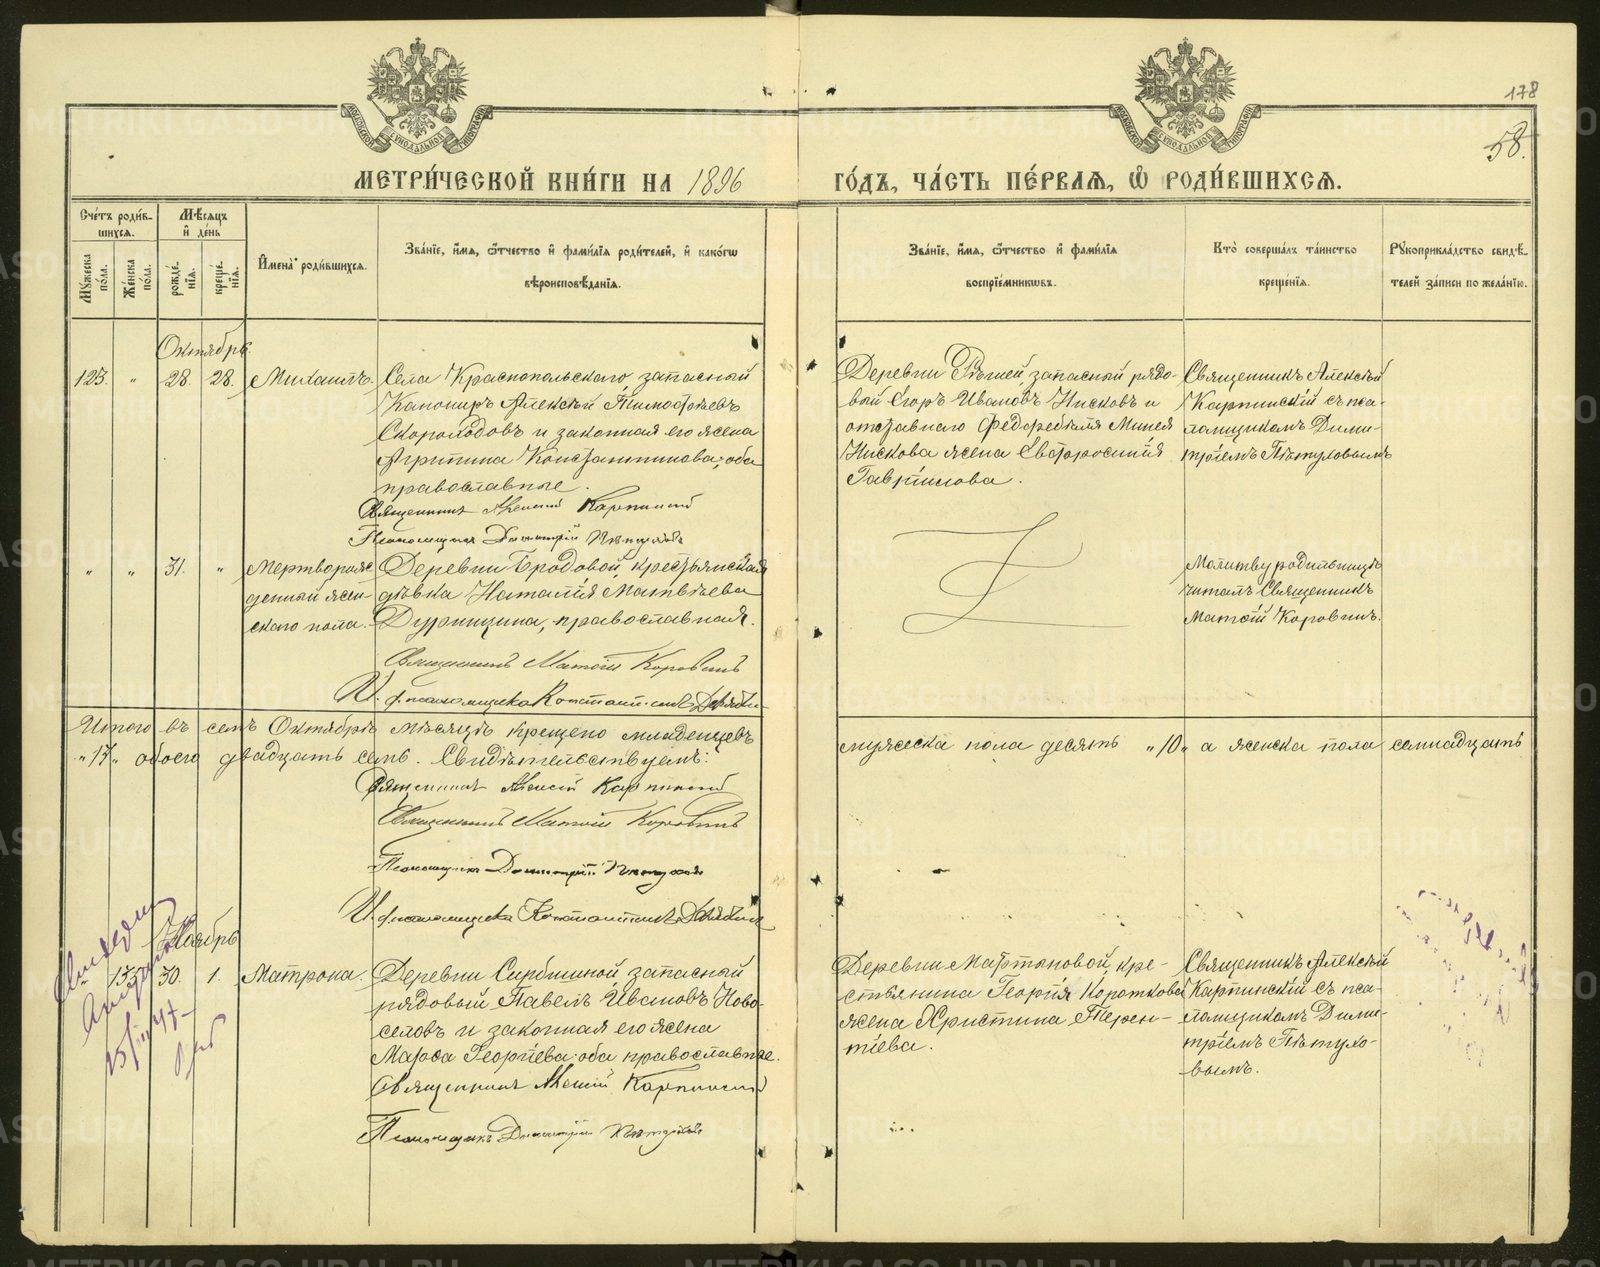 178
58.
МЕТРИ́ЧЕСКОЙ КНИ́ГИ НА 1896
ГО́ДЪ, ЧА́СТЬ ПЕ́РВАЯ, Ѽ РОДИ́ВШИХСЯ.
Сче́тъ роди́в-
шихся.
Мѣ́сяцъ
и҆ де́нь
Му́жеска
по́ла.
Же́нска
по́ла.
рожде́-
нїѧ.
креще́-
нїѧ.
И҆мена̀ роди́вшихся.
Зва́нїе, и҆́мѧ, ѻ҆́тчество и҆ фами́лїѧ роди́телей, и҆ како́гѡ
вѣроисповѣ́данїѧ.
Зва́нїе, и҆́мѧ, ѻ҆́тчество и҆ фами́лїѧ
воспрїе́мниковъ.
Кто̀ соверша́лъ та́инство
креще́нїѧ.
Рꙋкоприкла́дство свидѣ́-
телей за́писи по жела́нїю.
Октябрь.
123. " 28. 28. Михаилъ.
Села Краснопольскаго, запасный
Канониръ Алексѣй Тимофѣевъ
Скороходовъ и законная его жена
Агрипина Константинова; оба
православные.
Священникъ Алексій Карпинскій
Псаломщикъ Димитрій Пѣтуховъ
Деревни запасный рядо-
вый Егоръ Ивановъ Нисковъ и
отставного Федфебеля Минея
Нискова жена Евфросинія
Гаврилова.
Священникъ Алексѣй
Карпинскій съ пса-
ломщикомъ Дими-
тріемъ Пѣтуховымъ
" " 31. " Мертворож-
денный жен-
скаго пола.
Деревни Бродовой, крестьянская
дѣвка Наталія Матвѣева
Дурницина, православная.
Священникъ Матѳій Коровинъ
И. д. псаломщика Константинъ
Молитву родильницѣ
читалъ Священникъ
Матѳій Коровинъ.
Итого въ семъ Октябрѣ мѣсяцѣ крещено младенцевъ
мужеска пола десять "10" а женска пола семнадцать
"17" обоего двадцать семь. Свидѣтельствуемъ:
Священникъ Алексій Карпинскій
Священникъ Матѳій Коровинъ
Псаломщикъ Димитрій Пѣтуховъ
И. д. псаломщика Константинъ
Ноябрь
30. 1. Матрона.
Деревни Сирбишной запасный
рядовый Павелъ Ивановъ Ново-
селовъ и законная его жена
Марѳа Георгіева оба православные.
Священникъ Алексій Карпинскій
Псаломщикъ Димитрій Пѣтуховъ
Деревни Мартяновой, кре-
стьянина Георгія Короткова
жена Христина Терен-
тіева.
Священникъ Алексѣй
Карпинскій съ пса-
ломщикомъ Дими-
тріемъ Пѣтухо-
вымъ.
METRIKI.GASO-URAL.RU